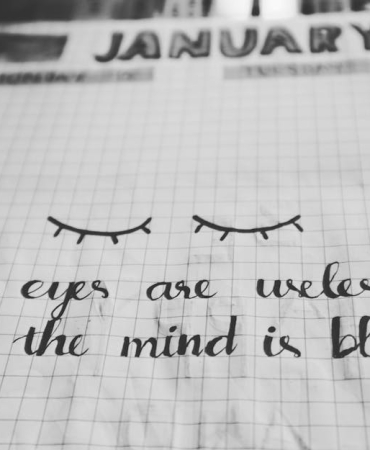 JANUARY
eyes are useles
the mind is bl